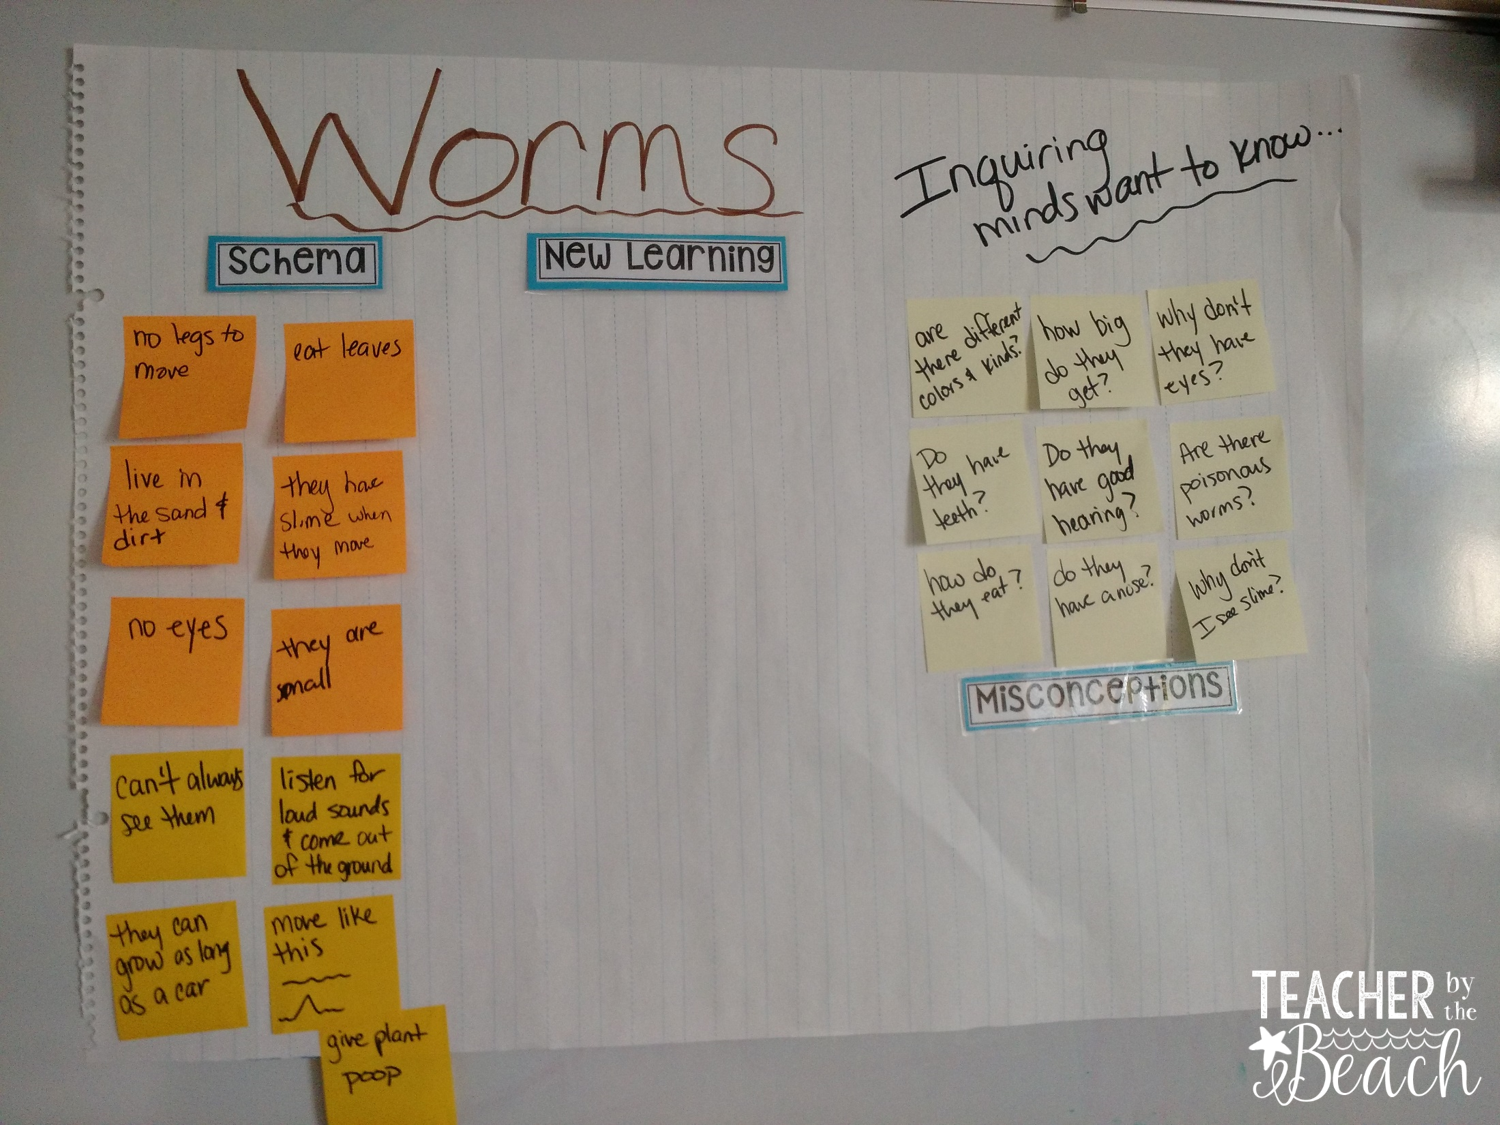 Worms
Inquiring
minds want to know...
Schema
New Learning
no legs to
move
eat leaves
live in
the sand &
dirt
they have
slime when
they move
no eyes
they are
small
can't always
see them
listen for
loud sounds
& come out
of the ground
they can
grow as long
as a car
move like
this
give plant
poop
are
there different
colors & kinds?
how big
do they
get?
Why don't
they have
eyes?
Do
they have
teeth?
Do they
have good
hearing?
Are there
poisonous
worms?
how do
they eat?
do they
have a nose?
Why don't
I see slime?
Misconceptions
TEACHER by
the
Beach